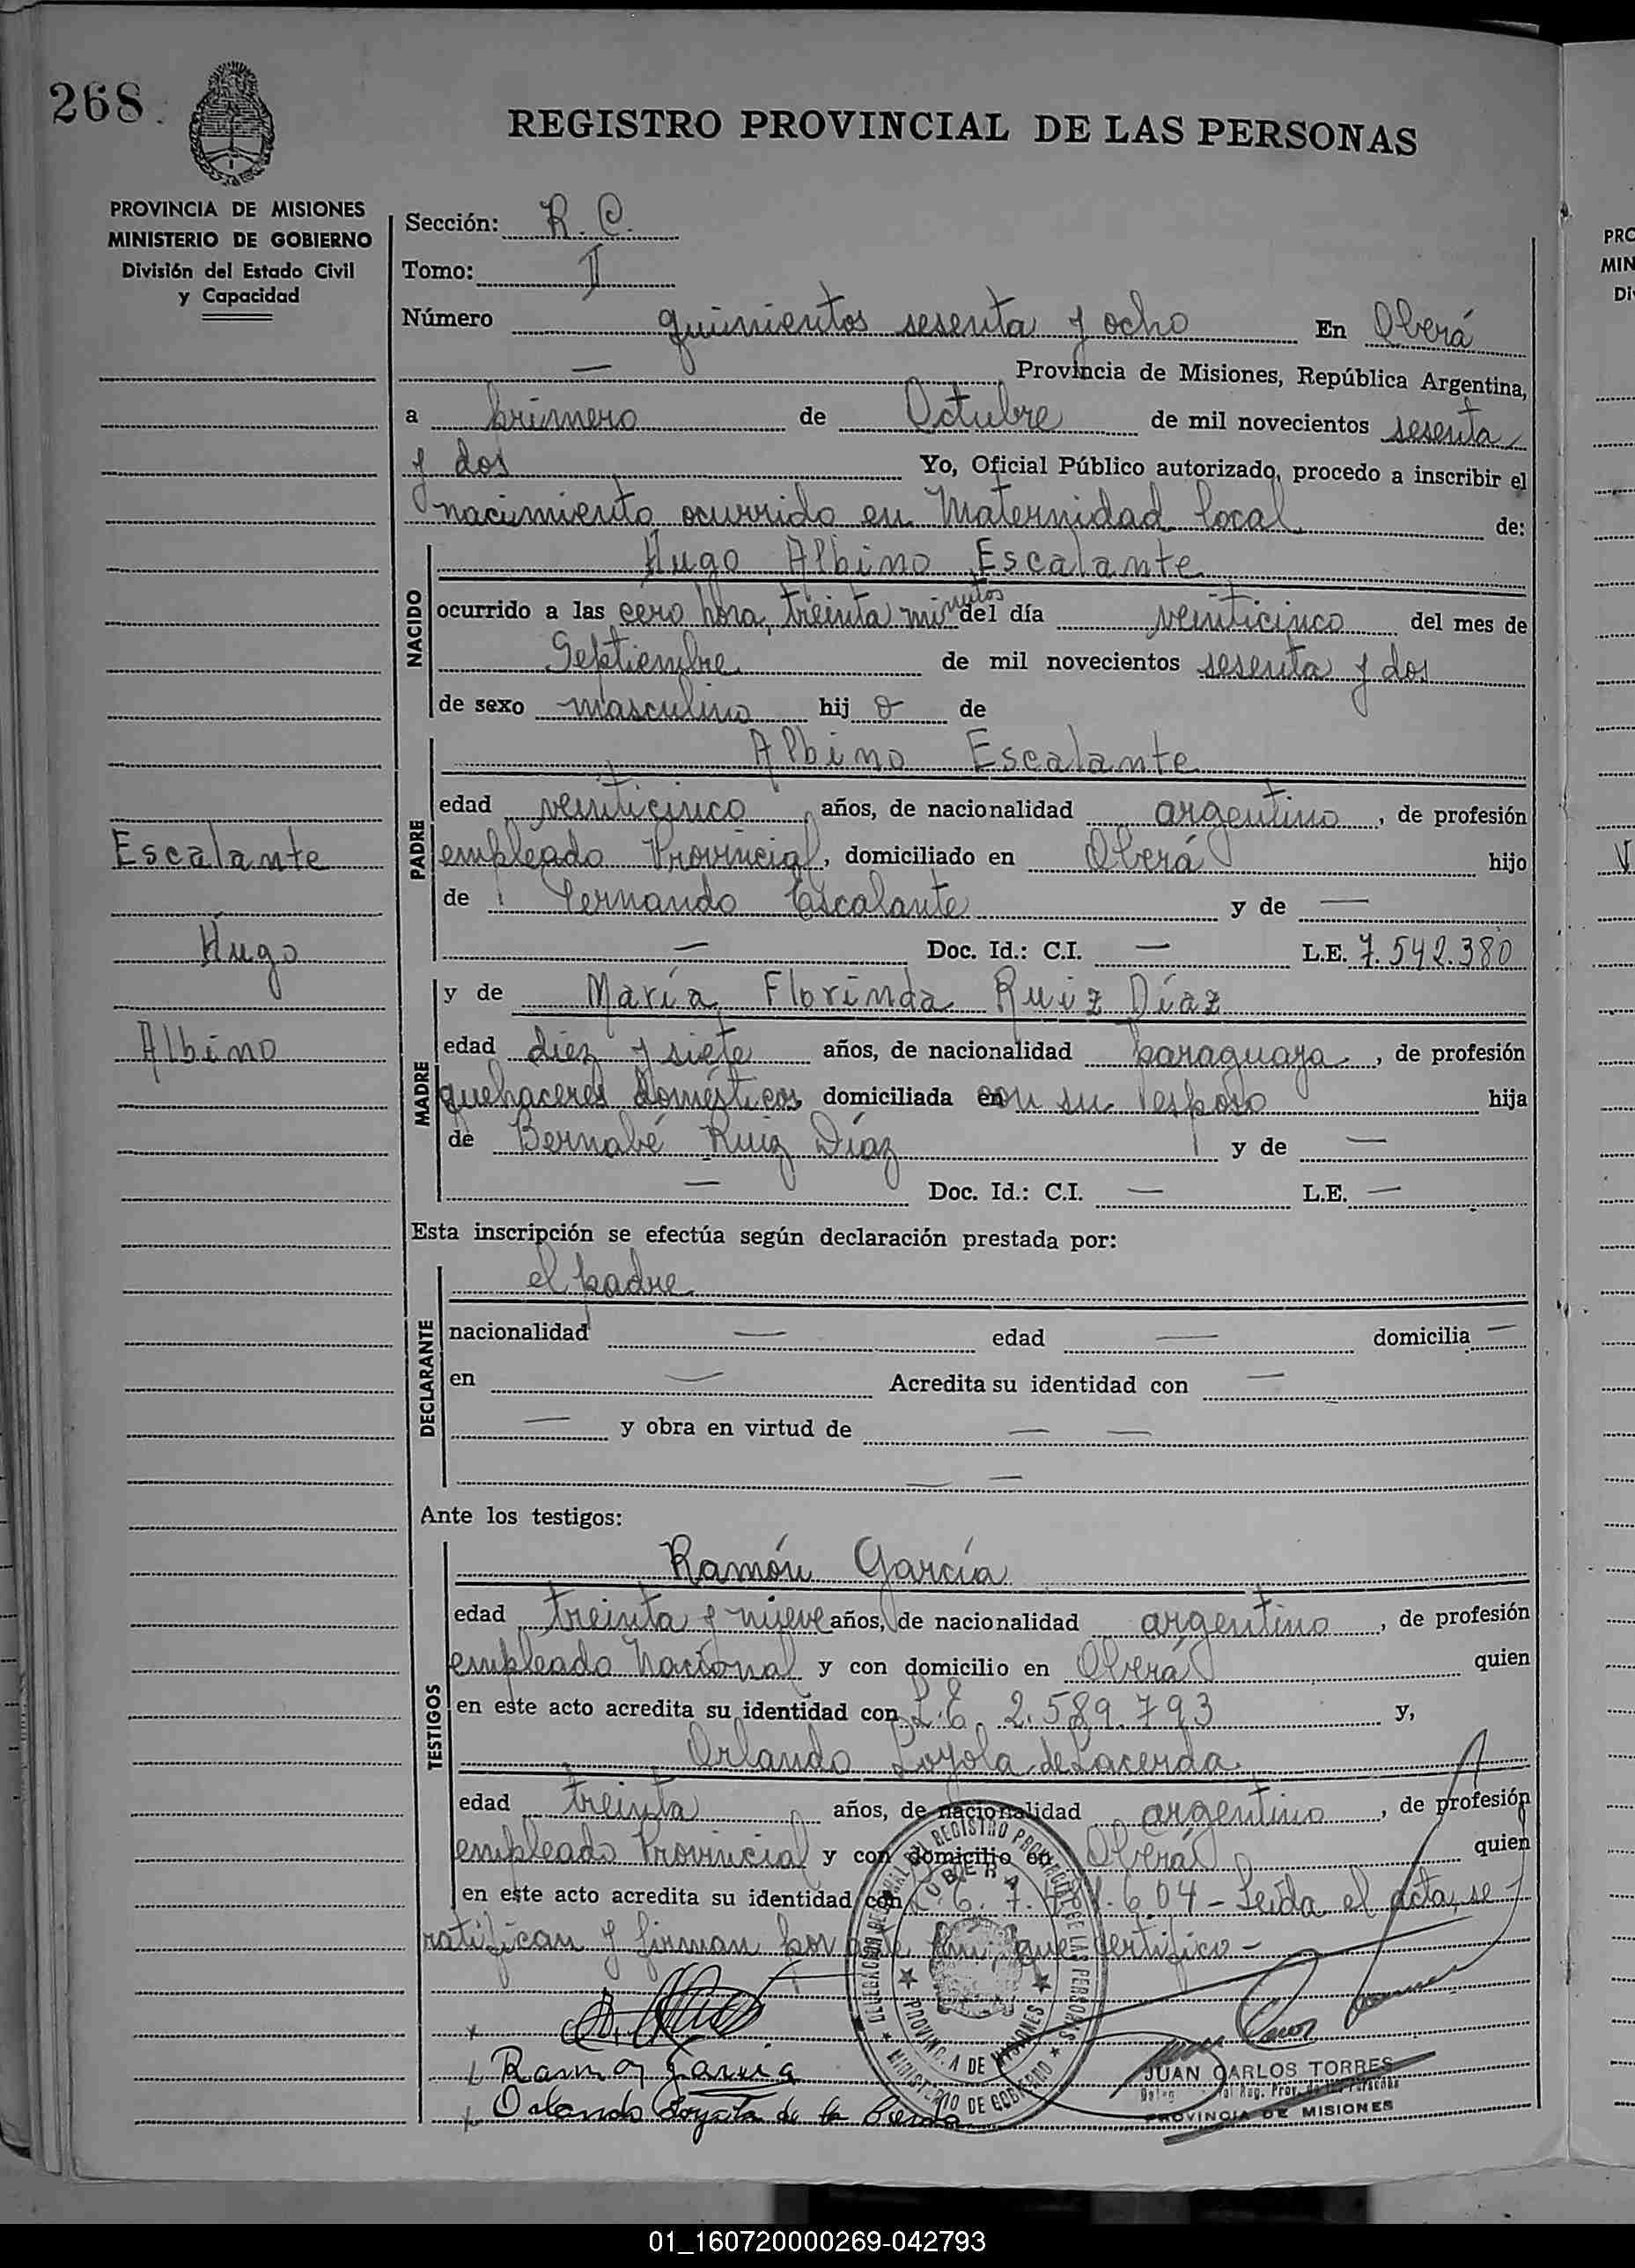 268.
REGISTRO PROVINCIAL DE LAS PERSONAS
PROVINCIA DE MISIONES
MINISTERIO DE GOBIERNO
División del Estado Civil
y Capacidad
Escalante
Hugo
Albino
Sección: R. C.
Tomo: II
Número quinientos sesenta y ocho En Oberá
— Provincia de Misiones, República Argentina,
a primero de Octubre de mil novecientos sesenta
y dos Yo, Oficial Público autorizado, procedo a inscribir el
nacimiento ocurrido en Maternidad local de:
NACIDO
Hugo Albino Escalante
ocurrido a las cero hora, treinta minutos del día veinticinco del mes de
Septiembre de mil novecientos sesenta y dos
de sexo masculino hij o de
PADRE
Albino Escalante
edad veinticinco años, de nacionalidad argentino, de profesión
empleado Provincial, domiciliado en Oberá hijo
de Fernando Escalante y de —
— Doc. Id.: C.I. — L.E. 7.542.380
MADRE
y de María Florinda Ruiz Díaz
edad diez y siete años, de nacionalidad paraguaya, de profesión
quehaceres domésticos domiciliada con su esposo hija
de Bernabé Ruiz Díaz y de —
— Doc. Id.: C.I. — L.E. —
Esta inscripción se efectúa según declaración prestada por:
DECLARANTE
el padre
nacionalidad — edad — domicilia —
en — Acredita su identidad con —
— y obra en virtud de — —
— —
Ante los testigos:
TESTIGOS
Ramón García
edad treinta y nueve años, de nacionalidad argentino, de profesión
empleado Nacional y con domicilio en Oberá quien
en este acto acredita su identidad con L.E. 2.589.793 y,
Orlando Loyola de Lacerda
edad treinta años, de nacionalidad argentino, de profesión
empleado Provincial y con domicilio en Oberá quien
en este acto acredita su identidad con L.E. 7. 604 - Leída el acta, se
ratifican y firman por ante mí, que certifico -
Ramon Garcia
Orlando Loyola de la Cerda
DELEGACION REGISTRO PROVINCIAL DE LAS PERSONAS
OBERA
PROVINCIA DE MISIONES
MINISTERIO DE GOBIERNO
JUAN CARLOS TORRES
Reg. Prov. de las Personas
PROVINCIA DE MISIONES
PRO
MIN
Di
01_160720000269-042793